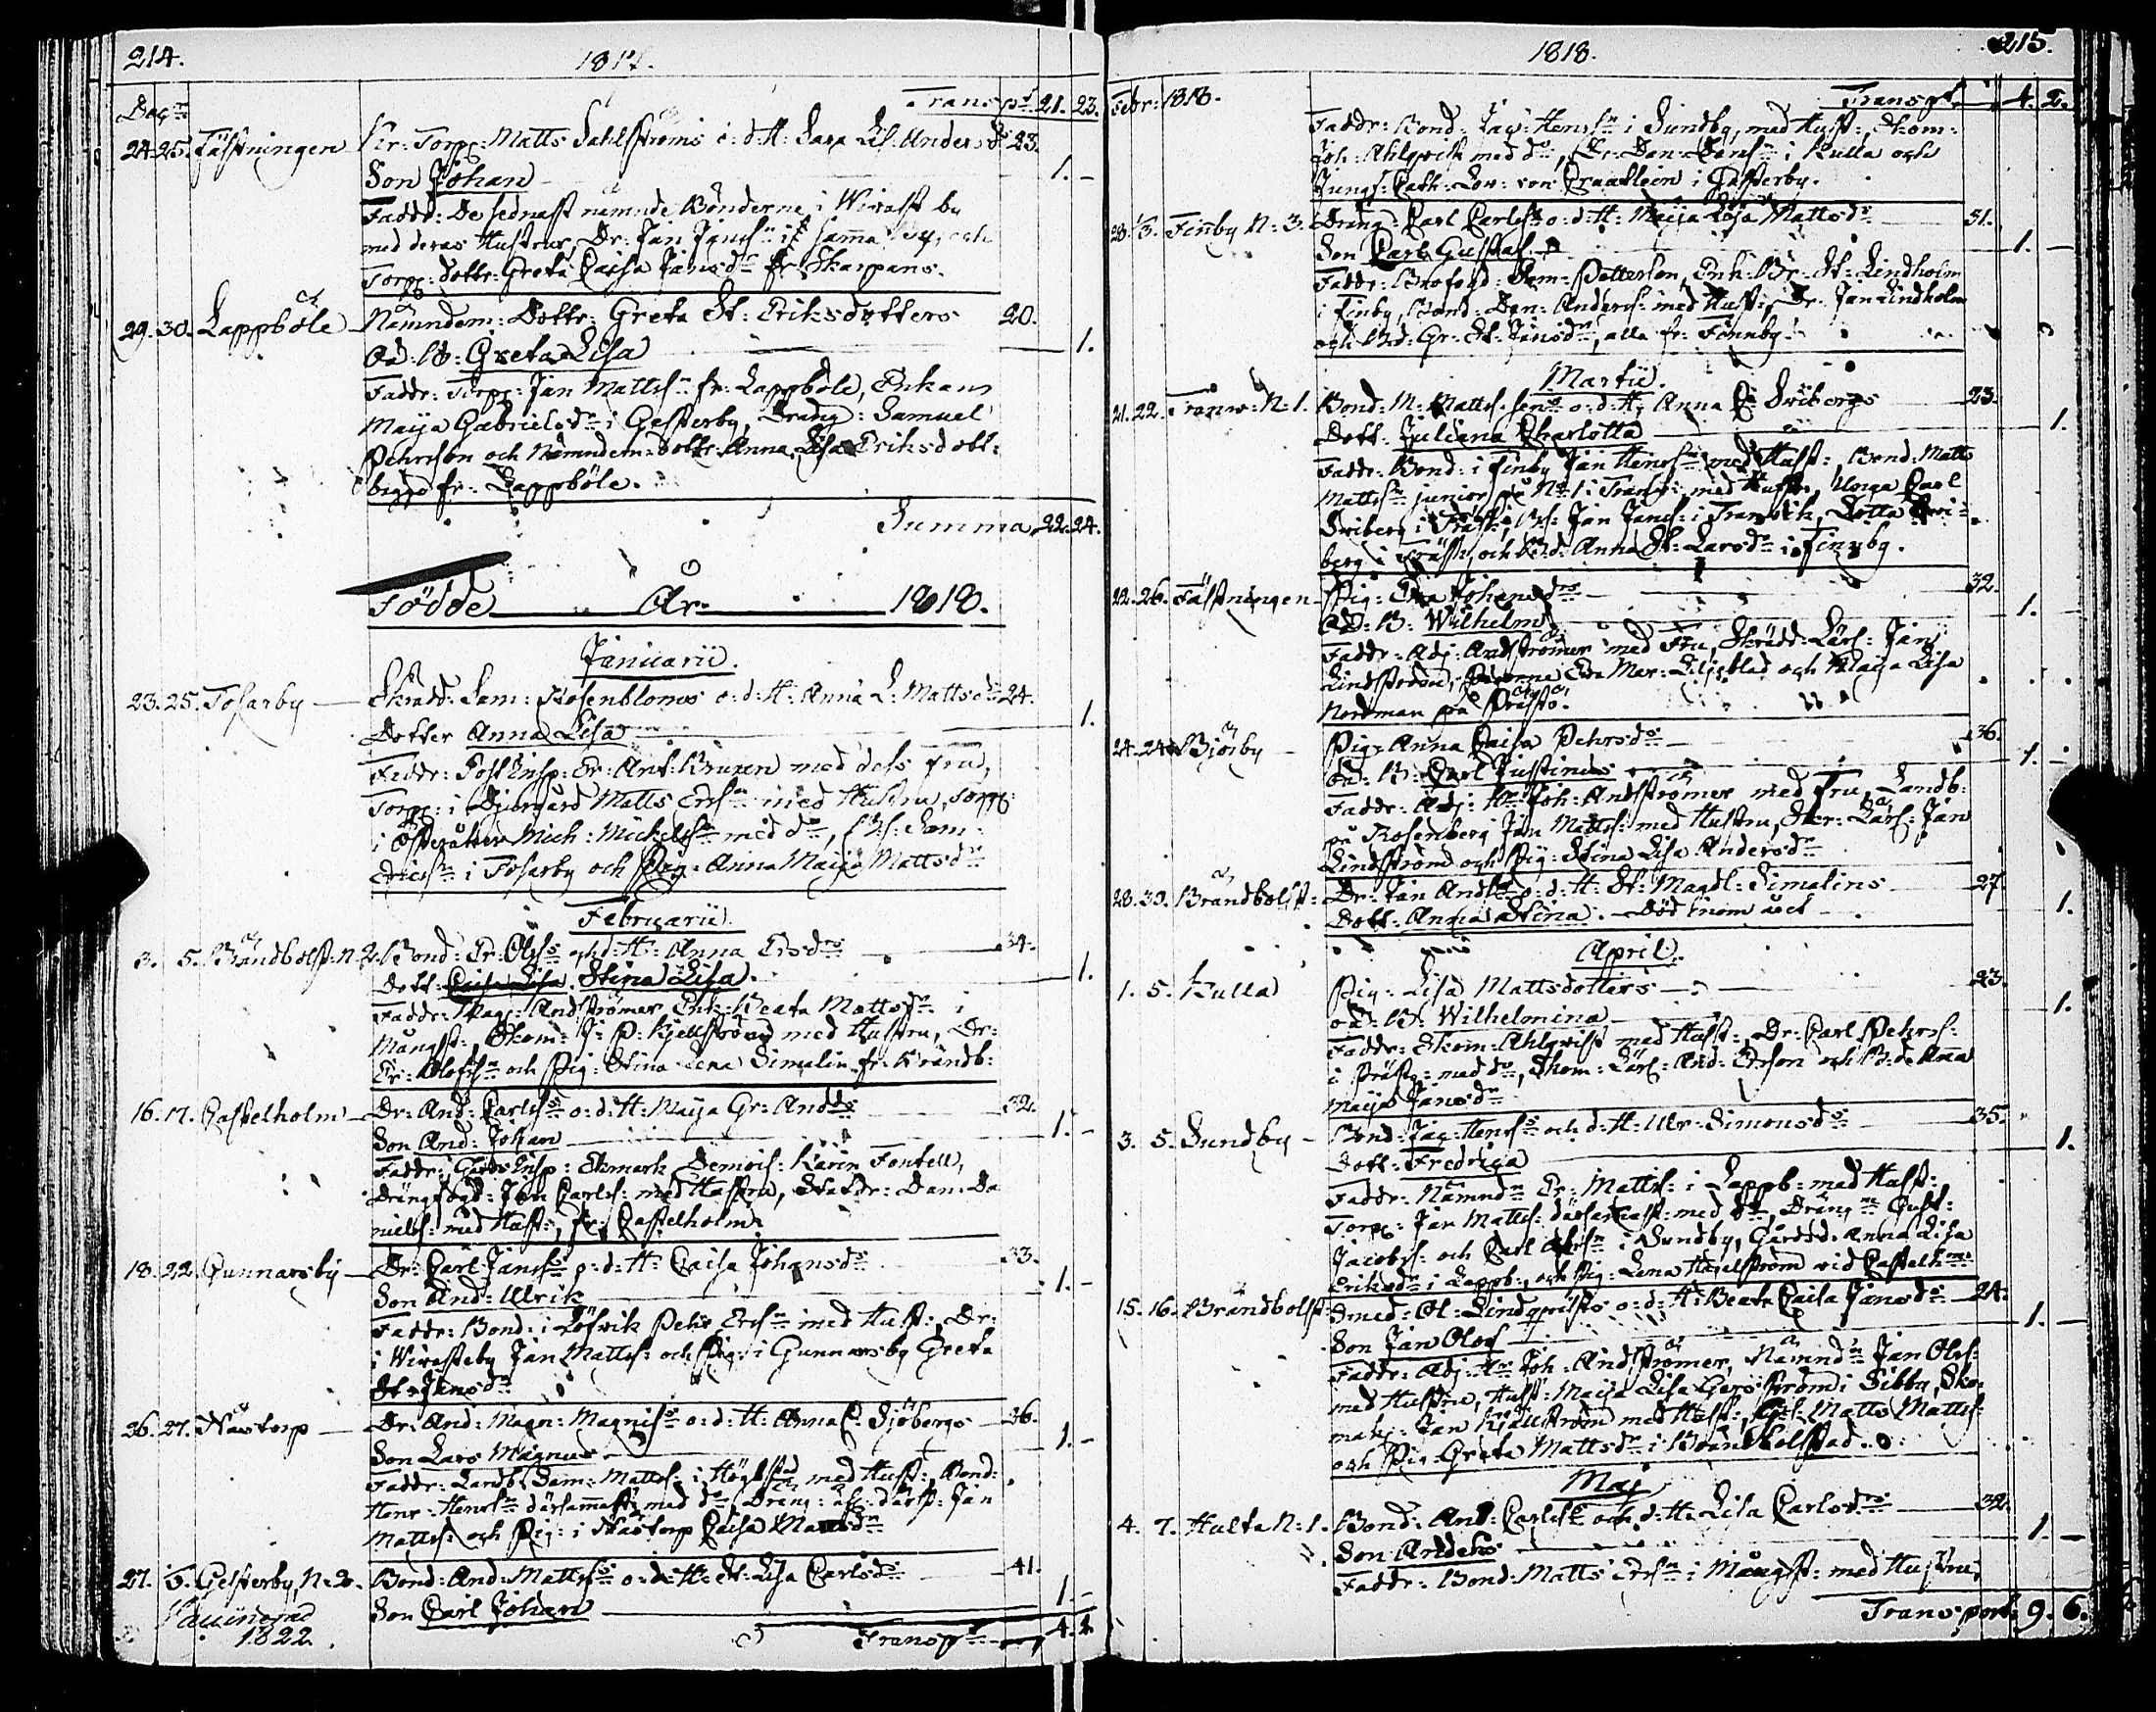 214. 1817.
Dag: Transpt 21. 23.
24. 25. Fästningen Kr: Torp: Matts Sahlströms o: d: H: Sara Lis: Anders ds 23.
Son Johan 1. -
Faddr: De sednast nämnde Bönderne i Wivast by
med deras Hustrur, Dr: Jan Jansn i samma by, och
Torp: dottr: Greta Caisa Jansdr fr: Skarpans.
29. 30. Lappböle Nämndem: Dottr: Greta St: Eriksdotters 20.
Oä: B: Greta Lisa 1.
Faddr: Torp: Jan Mattsn fr: Lappböle, Enkan
Maija Gabrielsdr i Gesterby, Dräng: Samuel
Pehrsson och Nämndem: dottr Anna Lisa Eriksdott:
begge fr: Lappböle.
Summa 22. 24.
Födde År 1818.
Januarii.
23. 25. Tosarby Skrädd: Sam: Rosenbloms o: d: H: Anna L: Mattsds 24.
Dotter Anna Lisa 1.
Faddr: Post Insp: Er: Ant: Bruun med dess Fru,
Torp: i Djurgård Matts Ersn med Hustru, Torp:
i Österåker Mich: Mickelsn med do, Bs: Sam:
Ericsn i Tosarby och Pig: Anna Maija Mattsdr
Februarii.
3. 5. Brändbolst: N: 2. Bond: Er: Olss och d: H: Anna Ersds 34.
Dott: Caisa Lisa Stina Lisa. 1.
Faddr: Mag: Andströmer, Enk: Beata Mattsdr i
Mångst:, Ekom: J: P: Kjellström med Hustru, Dr:
Er: Olofsn och Pig: Stina Lena Simelin fr: Brändb:
16. 17. Castelholm Dr: And: Carlss o: d: H: Maija Gr: Andds 32.
Son And: Johan 1. -
Faddr: Gårds Insp: Ekmark, Demois: Karin Fontell,
Drängfogd: Jan Carls: med Hustru, Statdr: Dan: Da
niels: med Hust:, fr: Castelholm.
18. 22. Gunnarsby Dr: Carl Janss o: d: H: Caisa Johansds 33.
Son And: Ulrik 1. -
Faddr: Bond: i Löfvik Pehr Ersn med Hust:, Dr:
i Wivasteby Jan Matts: och Pig: i Gunnarsby Greta
St: Jansdr
26. 27. Nästorp Dr: And: Magn: Magniss o: d: H: Anna C: Sjöbergs 36.
Son Lars Magnus 1. -
Faddr: Landb: Sam: Matts: i Högbstad med Hust:, Bond:
Henr: Henrsn därsammast: med do, Dräng: därst: Jan
Matts: och Pig: i Nästorp Caisa Mattsdr
27. 3. Gesterby N: 2. Bond: And: Mattss o: d: H: St: Lisa Carlsds 41.
Son Carl Johan 1. -
1822. Transpt 4. 2.
1818. 215.
Febr: 1818. Transpt 4. 2.
Faddr: Bond: Jac: Henrsn i Sundby, med Hust:, Ekom:
Joh: Ahlqvist med do, Dr: Dan: Dansn i Kulla och
Jungf: Cath: Lov: von Kraftlein i Gesterby.
28. 1/3. Finby N: 3. Dräng: Carl Carlss o: d: H: Maija Lisa Mattsds 31.
Son Carl Gustaf. 1. -
Faddr: Brofogd: Sam: Petterson, Enk: Br: St: Lindholm
i Finby, Bond: Dan: Anders: med Hust:, Dr: Jan Lindholm
och Bd: Gr: St: Jansdr, alla fr: Finnby.
Martii.
21. 22. Tranv: N: 1. Bond: M: Matts: sens o: d: H: Anna C: Sribergs 23.
Dott: Juliana Charlotta 1.
Faddr: Bond: i Finby Jan Henrsn med Hust:, Bond: Matts
Mattsn junior på No 1 i Tranv: med Hustr, Unga Carl
Sriberg i Präst:, Bs: Jan Jans: i Tranvik, Lotta Sri-
berg i Präst:, och Bd: Anna St: Larsdr i Finnby.
22. 26. Fästningen Pig: Eva Johansds 32.
Oä: B: Wilhelm 1.
Faddr: Adj: Andströmer med Fru, Skrädd: Lärl: Jan
Lindström, Pigorne Eva Mar: Liljeblad och Maija Lisa
Nordman på Prästö.
24. 24. Björby Pig: Anna Caisa Pehrsds 36.
Oä: B: Carl Justinus 1. -
Faddr: Adj: Hr Joh: Andströmer med Fru, Landb:
på Rosenberg Jan Matts: med Hustru, Skr: Lärl: Jan
Lindström och Pig: Stina Lisa Andersdr
28. 30. Brändbolst: Dr: Jan Andss o: d: H: St: Magdl: Simelins 27.
Dott: Anna Stina. Död inom året 1.
April.
1. 5. Kulla Pig: Lisa Mattsdotters 23.
oä: B: Wilhelmina 1.
Faddr: Ekom: Ahlqvist med Hust:, Dr: Carl Pehrs:
i Prästg: med do, Skom: Lärl: And: Ersson och Bd: Anna
Maija Jansdr
3. 5. Sundby Bond: Jac: Henrss och d: H: Ulr: Simonsds 35.
Dott: Fredrica 1.
Faddr: Nämndn Er: Matts: i Lappb: med Hust:
Torp: Jan Matts: därsammast: med do, Drängne Gust:
Jacobs: och Carl Ersn i Sundby, Gårdsd: Anna Lisa
Eriksdr i Lappb:, och Pig: Lena Hagelström vid Castelhm:
15. 16. Brändbolst: Smed: Ol: Lindqvists o: d: H: Beata Caisa Jansds 24.
Son Jan Olof 1. -
Faddr: Adj: Hr Joh: Andströmer, Nämndn Jan Ols:
med Hustru, Hust: Maija Lisa Gersström i Sibby, Sko-
mak: Jan Kjällström med Hust:, Matts Matts:
och Pig: Greta Mattsdr i Brändbolstad.
Maj
4. 7. Hulta N: 1. Bond: And: Carlss och d: H: Lisa Carlsds 32.
Son Anders 1. -
Faddr: Bond: Matts Ersn i Mångst: med Hustru,
Transport 9. 6.